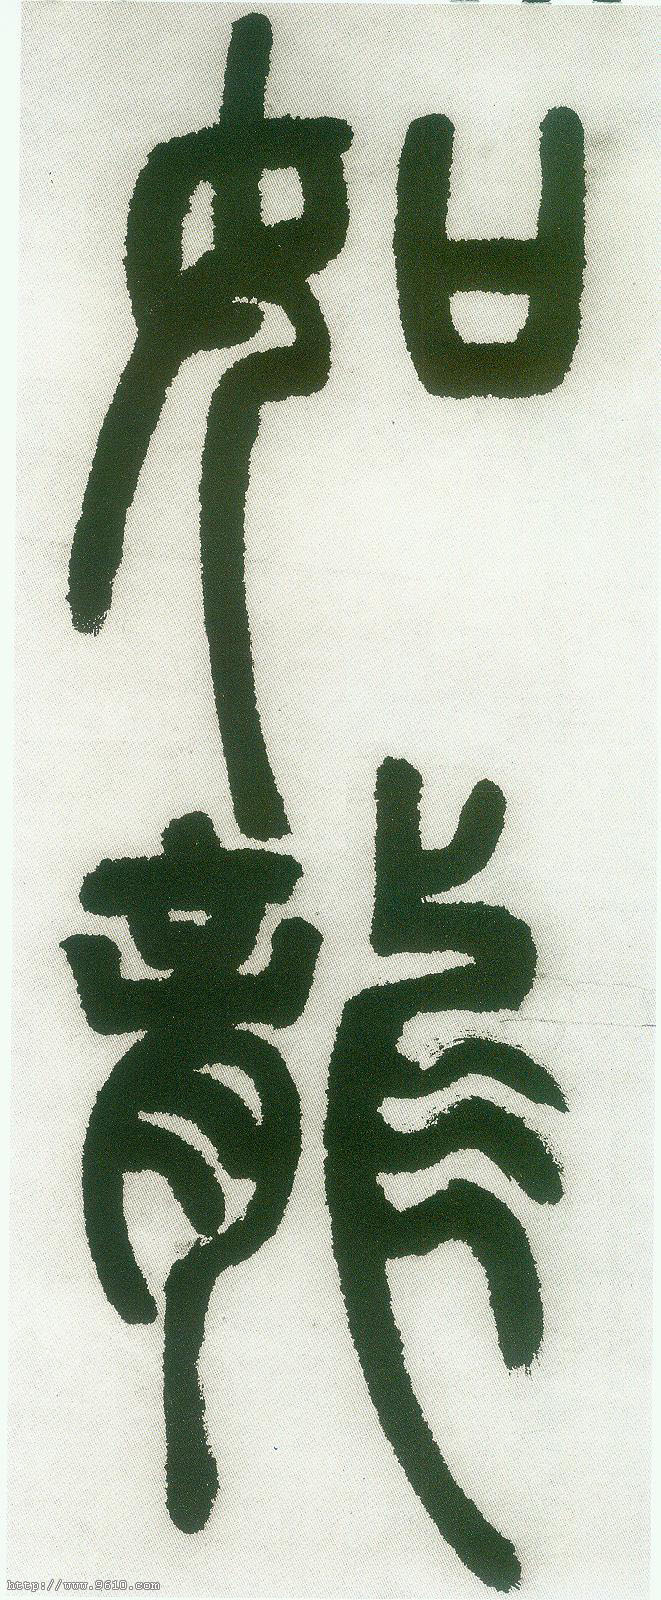 如龍
http://www.9610.com